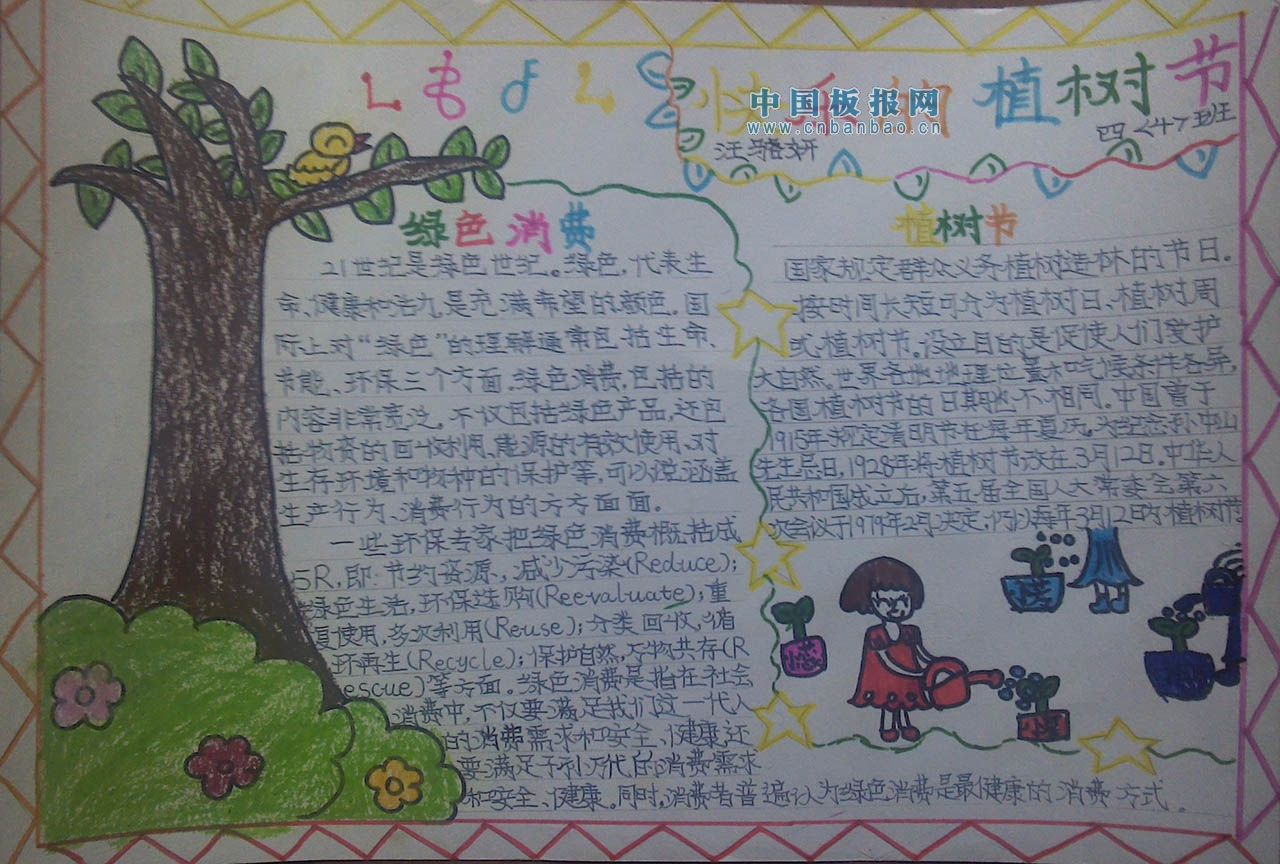 快乐的植树节
中国板报网
www.cnbanbao.cn
四〈4〉班
绿色消费
21世纪是绿色世纪。绿色,代表生
命、健康和活力,是充满希望的颜色。国
际上对“绿色”的理解通常包括生命、
节能、环保三个方面。绿色消费,包括的
内容非常宽泛。不仅包括绿色产品,还包
括物资的回收利用,能源的有效使用、对
生存环境和物种的保护等,可以说涵盖
生产行为、消费行为的方方面面。
一些环保专家把绿色消费概括成
5R,即:节约资源,减少污染(Reduce);
绿色生活,环保选购(Reevaluate);重
复使用,多次利用(Reuse);分类回收,循
环再生(Recycle);保护自然,万物共存(R
escue)等方面。绿色消费是指在社会
消费中,不仅要满足我们这一代人
的消费需求和安全、健康,还
要满足子孙万代的消费需求
和安全、健康。同时,消费者普遍认为绿色消费是最健康的消费方式。
植树节
国家规定群众义务植树造林的节日。
按时间长短可分为植树日、植树周
或植树节。设立目的是促使人们爱护
大自然。世界各地地理位置和气候条件各异,
各国植树节的日期也不相同。中国曾于
1915年规定清明节在每年夏历。为纪念孙中山
先生忌日,1928年将植树节改在3月12日。中华人
民共和国成立后,第五届全国人大常委会第六
次会议于1979年2月决定,仍以每年3月12日为植树节